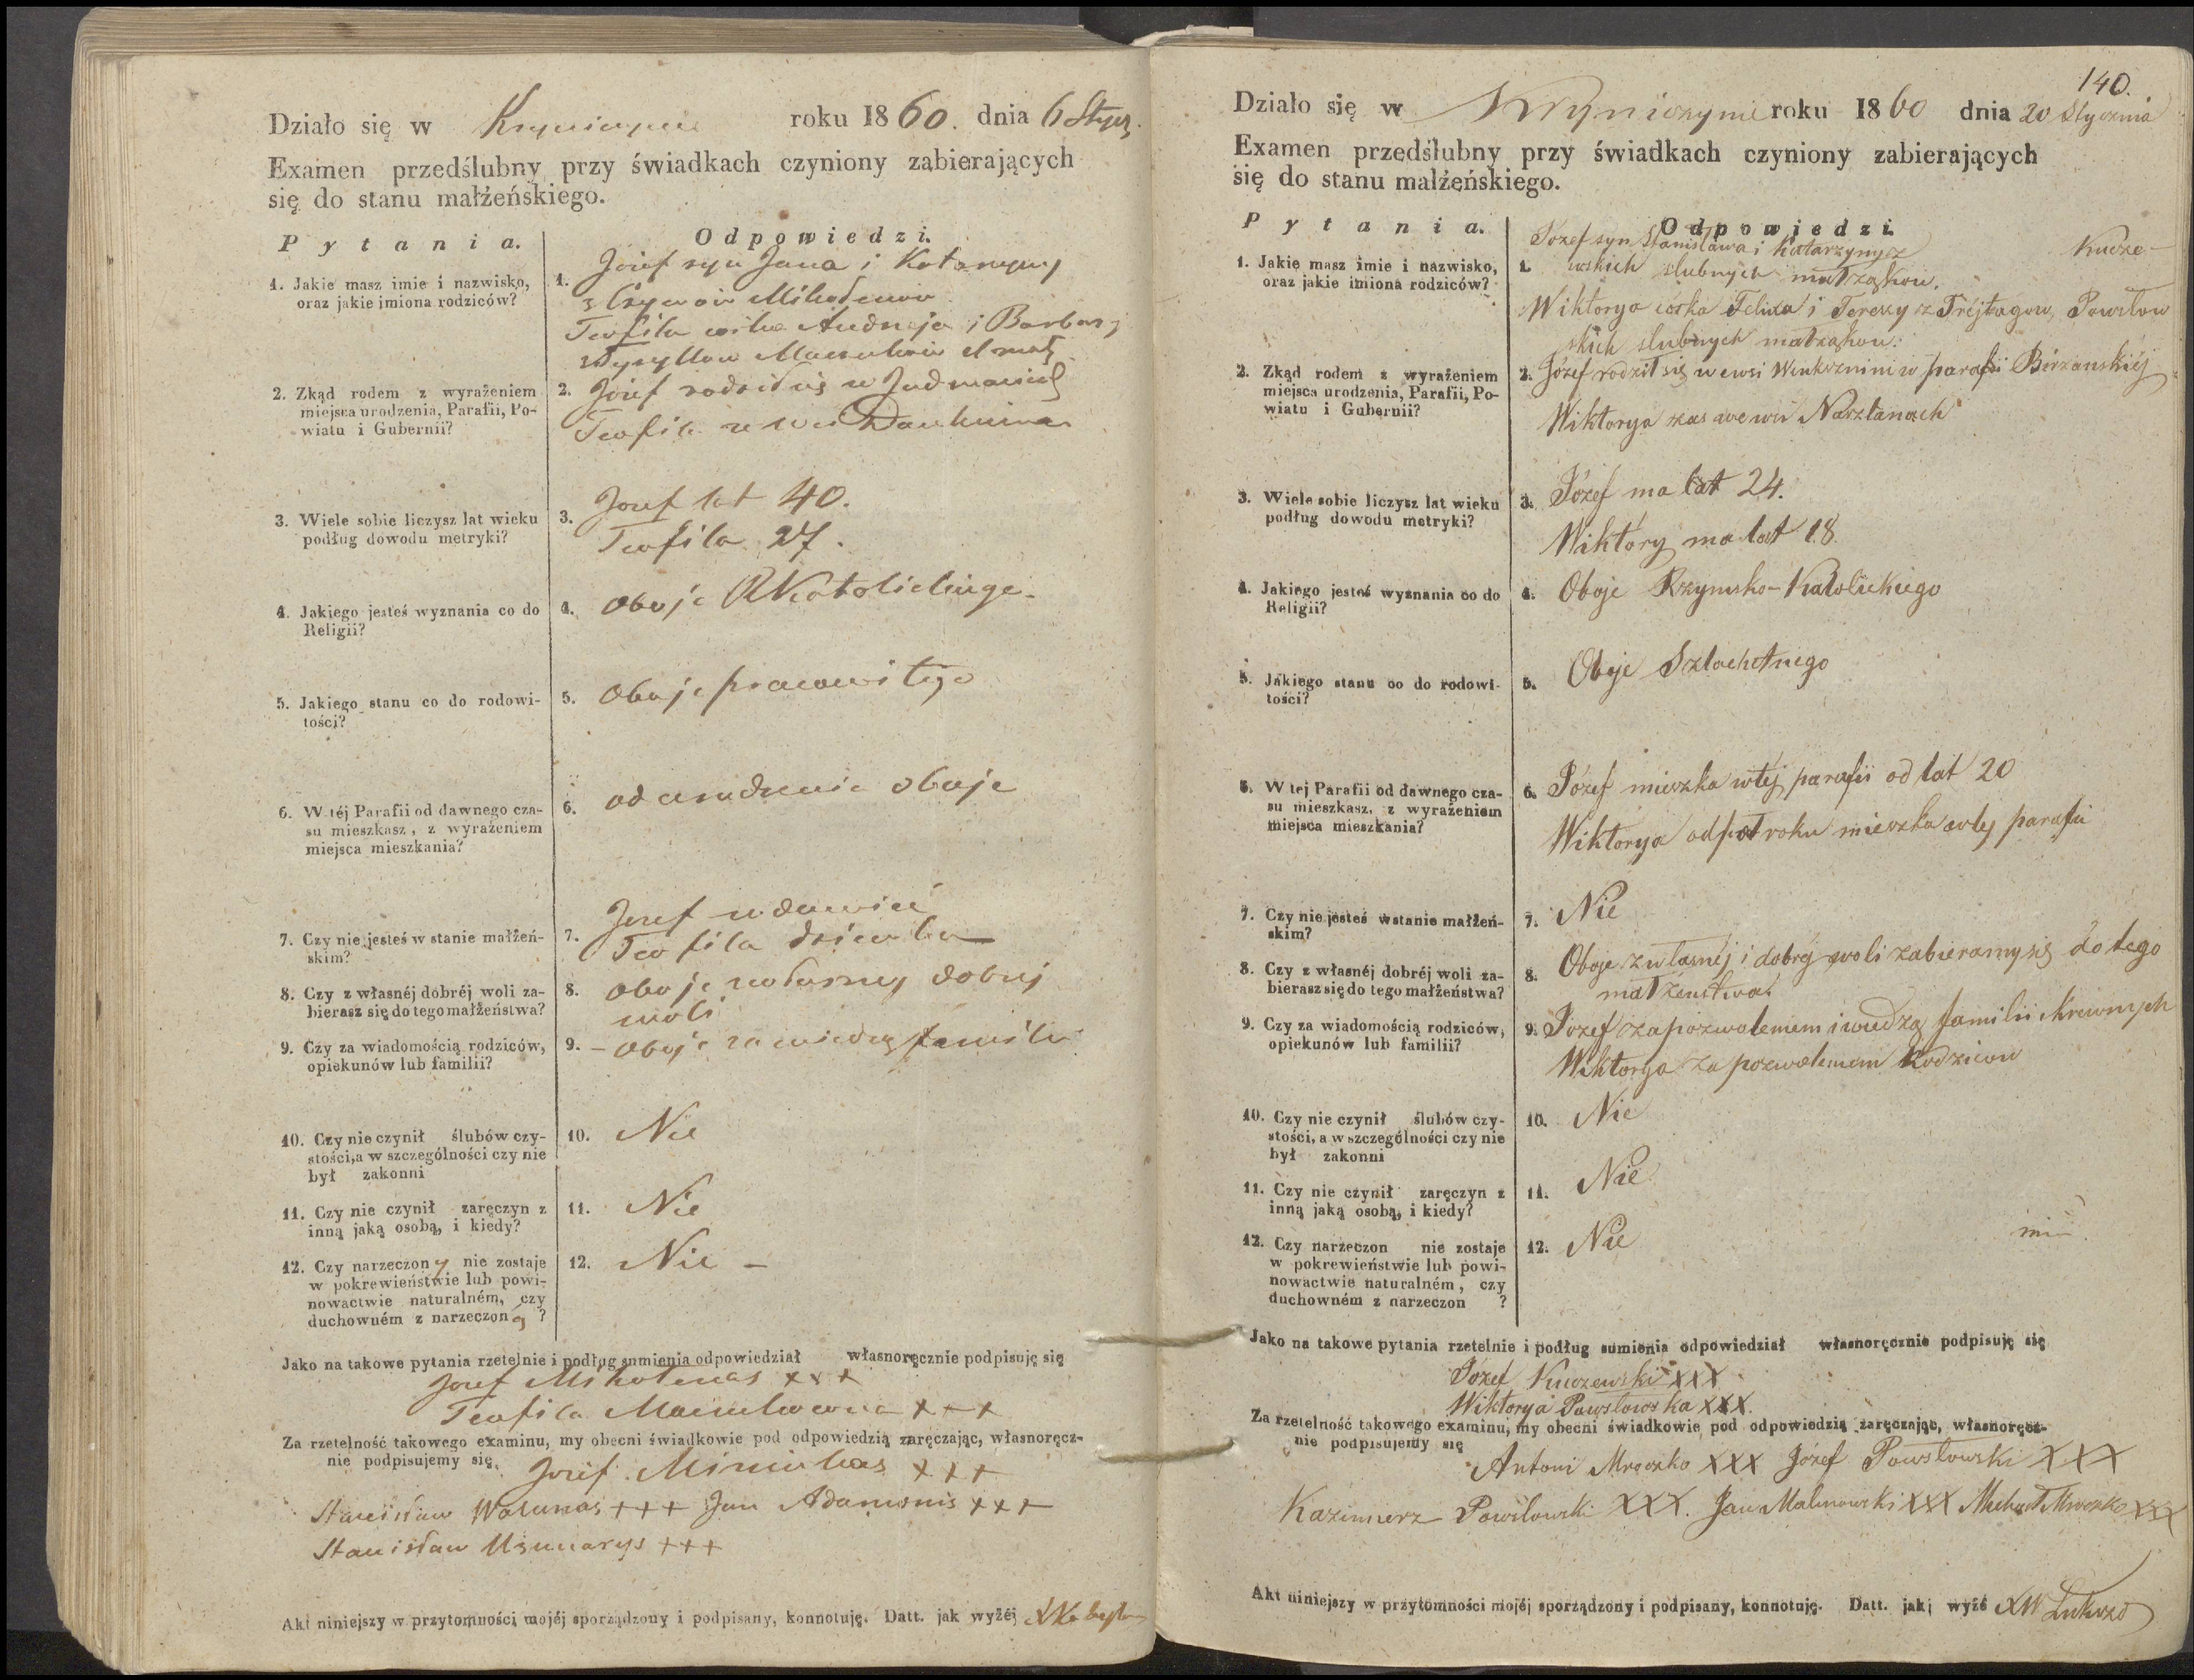 Działo się w Kryniczynie roku 1860. dnia 6 Stycz.
Examen przedślubny przy świadkach czyniony zabierających
się do stanu małżeńskiego.
Pytania.
Odpowiedzi.
1. Jakie masz imie i nazwisko,
oraz jakie imiona rodziców?
1. Józef syn Jana i Katarzyny
Mikołenów
Teofila córka Andrzeja i Barbary
2. Zkąd rodem z wyrażeniem
miejsca urodzenia, Parafii, Po-
wiatu i Gubernii?
2. Józef rodził się w
Teofila w wsi
3. Wiele sobie liczysz lat wieku
podług dowodu metryki?
3. Jozef lat 40.
Teofila 27.
4. Jakiego jesteś wyznania co do
Religii?
4. oboje RKatolickiego
5. Jakiego stanu co do rodowi-
tości?
5. oboje pracowitego
6. W téj Parafii od dawnego cza-
su mieszkasz, z wyrażeniem
miejsca mieszkania?
6. od urodzenia oboje
7. Czy nie jesteś w stanie małżeń-
skim?
7. Jozef wdowiec
Teofila dziewka
8. Czy z własnéj dobréj woli za-
bierasz się do tego małżeństwa?
8. oboje własney dobrej
woli
9. Czy za wiadomością rodziców,
opiekunów lub familii?
9. – oboje za wiedzą familii
10. Czy nie czynił ślubów czy-
stości, a w szczególności czy nie
był zakonni
10. Nie
11. Czy nie czynił zaręczyn z
inną jaką osobą, i kiedy?
11. Nie
12. Czy narzeczony nie zostaje
w pokrewieństwie lub powi-
nowactwie naturalném, czy
duchowném z narzeczoną ?
12. Nie –
Jako na takowe pytania rzetelnie i podług sumienia odpowiedział własnoręcznie podpisuję się
Jozef Mikolenas xxx
Teofila xxx
Za rzetelność takowego examinu, my obecni świadkowie pod odpowiedzią zaręczając, własnoręcz-
nie podpisujemy się.
Józef xxx
Stanisław Warunas +++ Jan Adamonis xxx
Stanisław +++
Akt niniejszy w przytomności mojéj sporządzony i podpisany, konnotuję. Datt. jak wyżéj
140.
Działo się w Kryniczynie roku 1860 dnia 20 Stycznia
Examen przedślubny przy świadkach czyniony zabierających
się do stanu małżeńskiego.
Pytania.
Odpowiedzi.
1. Jakie masz imie i nazwisko,
oraz jakie imiona rodziców?
1. Józef syn Stanisława i Katarzyny z Kucze-
wskich slubnych małżąkow.
Wiktorya córka Felixa i Terezy z Trejtagow, Powsłow
skich slubnych małżąkow.
2. Zkąd rodem z wyrażeniem
miejsca urodzenia, Parafii, Po-
wiatu i Gubernii?
2. Józef rodził się w ewsi w parafii Birżanskiéj
Wiktorya zas we wsi Narzłanach
3. Wiele sobie liczysz lat wieku
podług dowodu metryki?
3. Józef ma lat 24.
Wiktory ma lat 18.
4. Jakiego jesteś wyznania co do
Religii?
4. Oboje Rzymsko-Katolickiego
5. Jakiego stanu co do rodowi-
tości?
5. Oboje Szlachetnego
6. W tej Parafii od dawnego cza-
su mieszkasz, z wyrażeniem
miejsca mieszkania?
6. Józef mieszka w téj parafii od lat 20
Wiktorya od pół roku mieszka w tej parafii
7. Czy nie jesteś w stanie małżeń-
skim?
7. Nie
8. Czy z własnéj dobréj woli za-
bierasz się do tego małżeństwa?
8. Oboje z własnéj i dobréj woli zabieramy się do tego
małżenstwa.
9. Czy za wiadomością rodziców,
opiekunów lub familii?
9. Józef za pozwolemem i wiedzą familii Krewnych
Wiktorya za pozwolemem Rodzicow
10. Czy nie czynił ślubów czy-
stości, a w szczególności czy nie
był zakonni
10. Nie
11. Czy nie czynił zaręczyn z
inną jaką osobą, i kiedy?
11. Nie
12. Czy narzeczon nie zostaje
w pokrewieństwie lub powi-
nowactwie naturalném, czy
duchowném z narzeczon ?
12. Nie
Jako na takowe pytania rzetelnie i podług sumienia odpowiedział własnoręcznie podpisuję się
Józef Kuczewski XXX
Wiktorya Powsłowska XXX.
Za rzetelność takowego examinu, my obecni świadkowie pod odpowiedzią zaręczając, własnoręcz-
nie podpisujemy się
Antoni Mroczko XXX Józef Powsłowski XXX
Kazimierz Powsłowski XXX. Jan Malinowski XXX Michał Mroczko XXX
Akt niniejszy w przytomności mojéj sporządzony i podpisany, konnotuję. Datt. jak wyżé